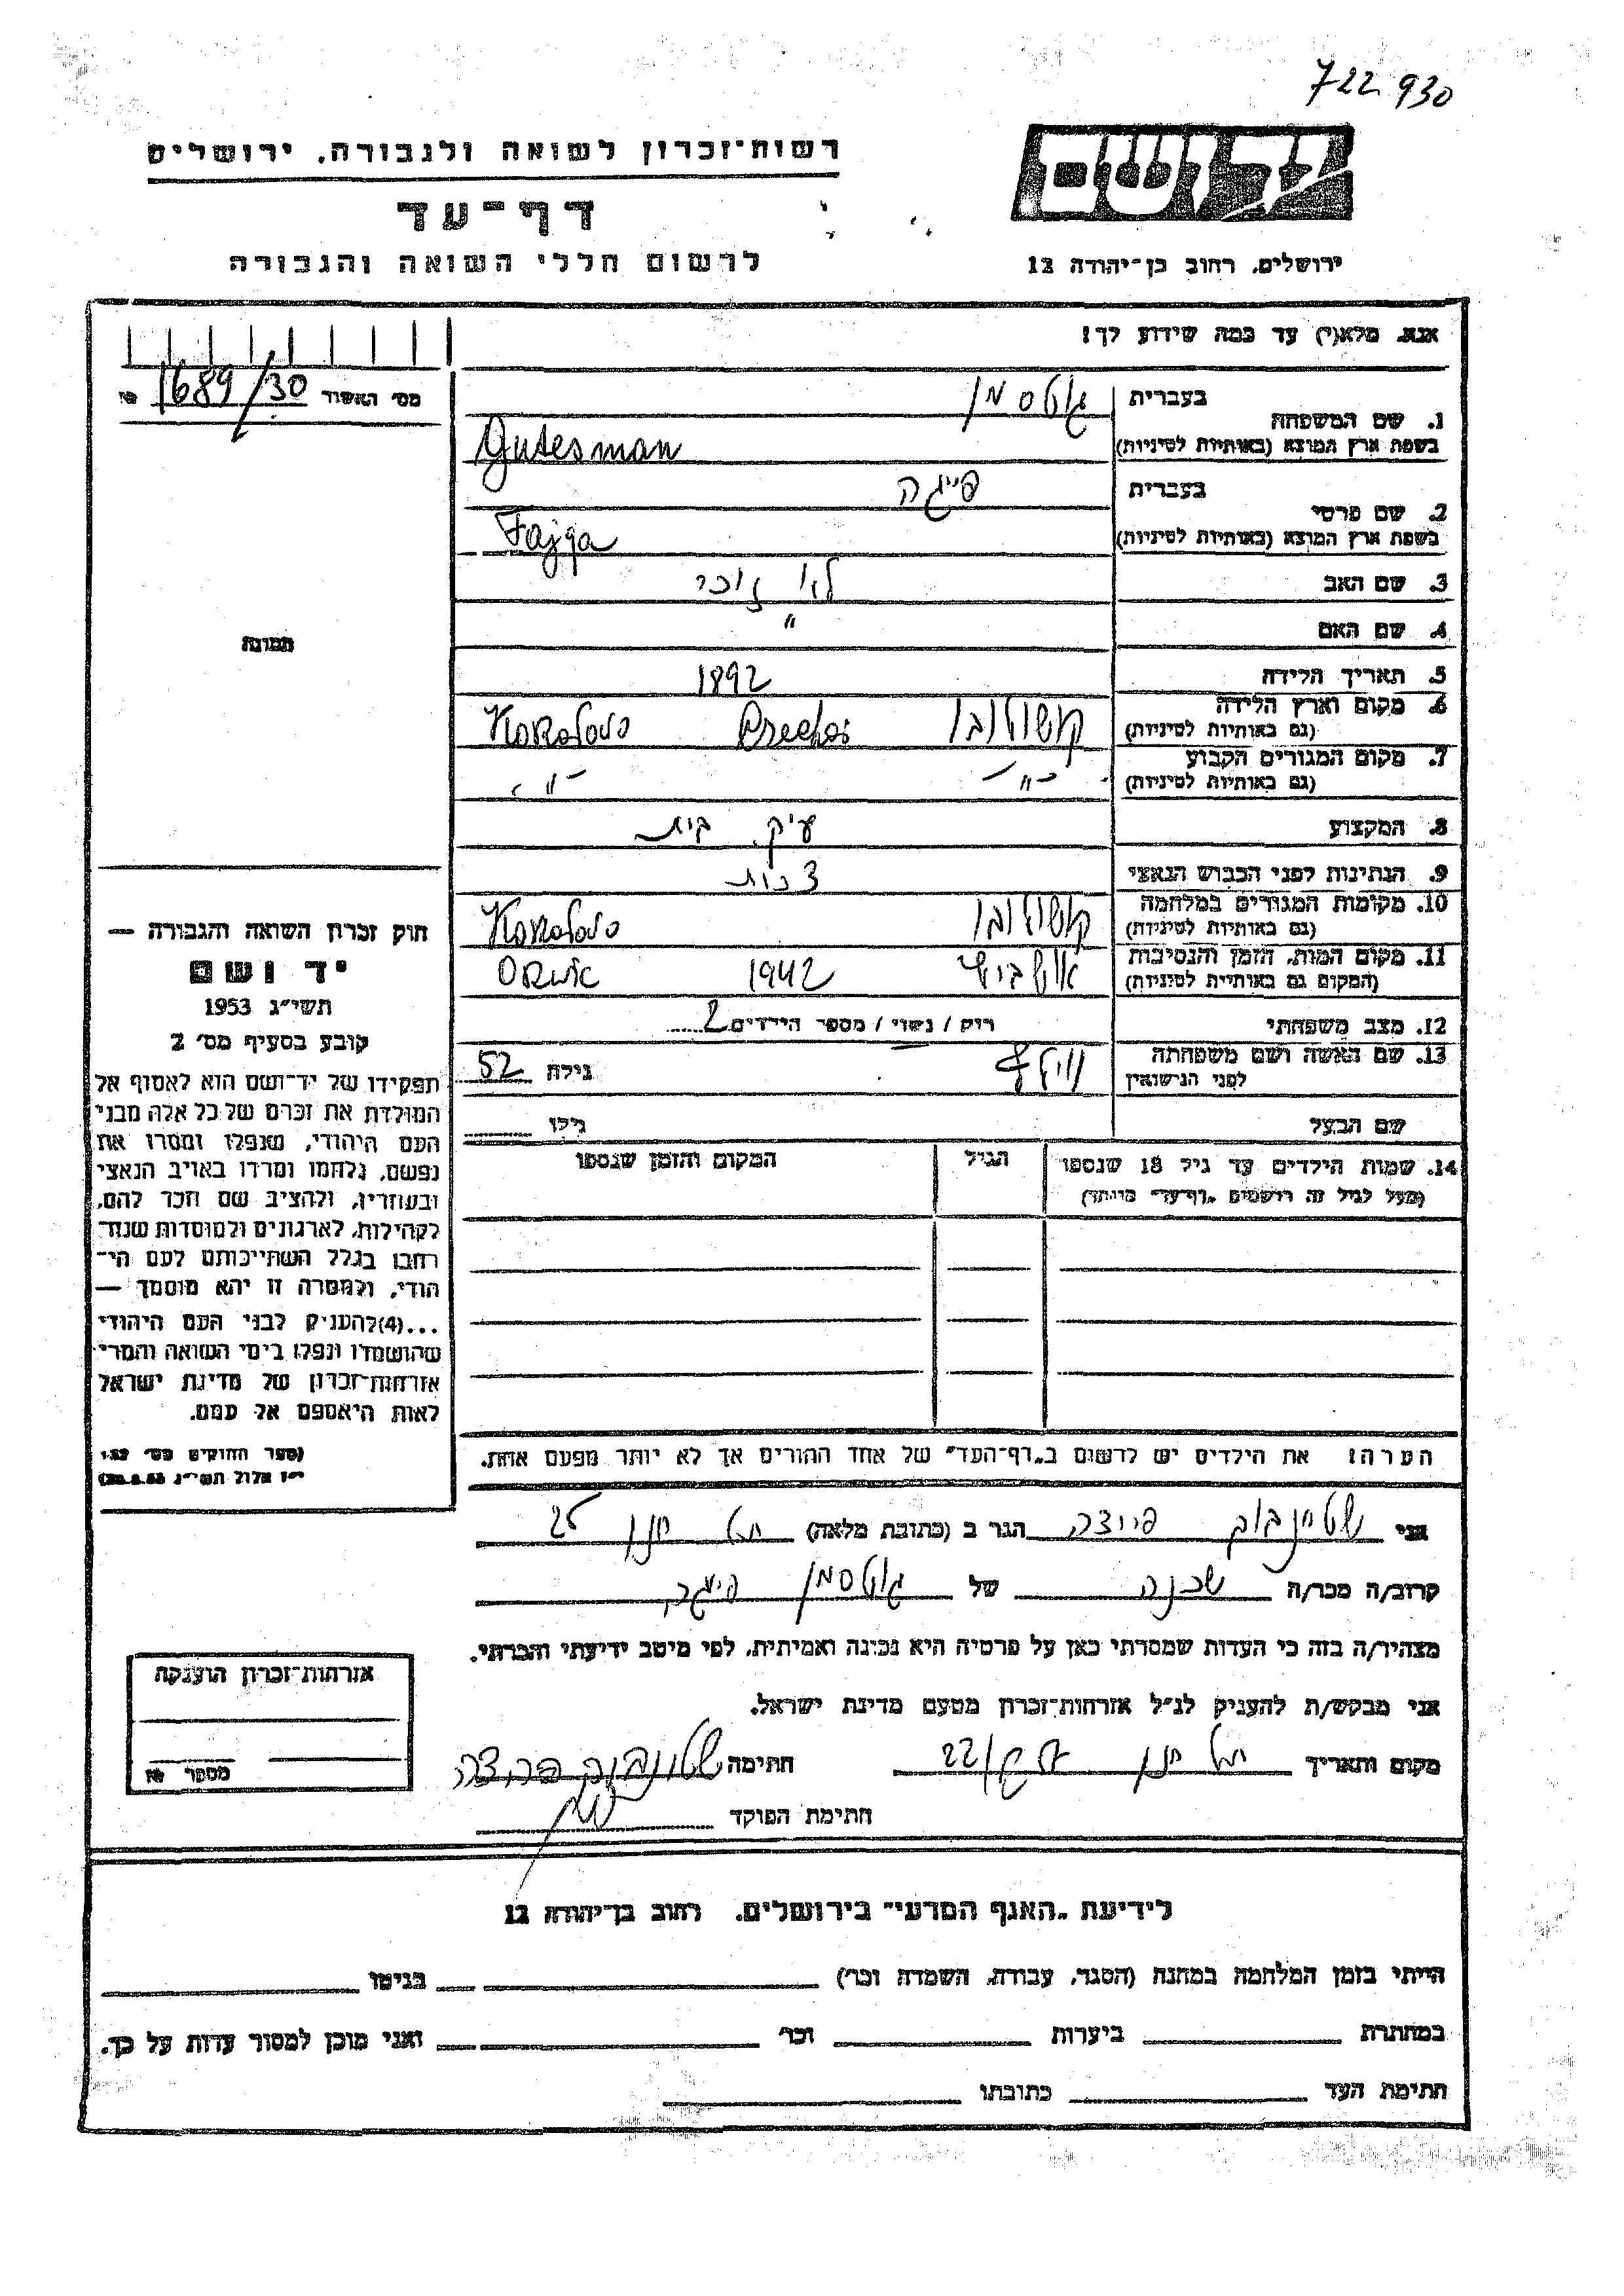 722930
יד ושם
רשות־זכרון לשואה ולגבורה, ירושלים
דף־עד
לרשום חללי השואה והגבורה
ירושלים, רחוב בן־יהודה 12
אנא, מלא(י) עד כמה שידוע לך!
מס׳ האשור 1689/30 №
1. שם המשפחה
בעברית גוטסמן
בשפת ארץ המוצא (באותיות לטיניות) Gutesman
2. שם פרטי
בעברית פייגה
בשפת ארץ המוצא (באותיות לטיניות) Fajga
3. שם האב לא זוכר
4. שם האם "
5. תאריך הלידה 1892
6. מקום וארץ הלידה
(גם באותיות לטיניות)
7. מקום המגורים הקבוע -"- -"-
(גם באותיות לטיניות)
8. המקצוע עק. בית
9. הנתינות לפני הכבוש הנאצי
10. מקומות המגורים במלחמה
(גם באותיות לטיניות)
11. מקום המות, הזמן והנסיבות אושביץ 1942
(המקום גם באותיות לטיניות)
12. מצב משפחתי רווק / נשוי / מספר הילדים 2
13. שם האשה ושם משפחתה
לפני הנישואין
גילה 52
שם הבעל
גילו
14. שמות הילדים עד גיל 18 שנספו
(מעל לגיל זה רושמים „דף־עד” מיוחד)
הגיל
המקום והזמן שנספו
הערה: את הילדים יש לרשום ב„דף־העד” של אחד ההורים אך לא יותר מפעם אחת.
תמונה
חוק זכרון השואה והגבורה —
יד ושם
תשי״ג 1953
קובע בסעיף מס׳ 2
תפקידו של יד־ושם הוא לאסוף אל
המולדת את זכרם של כל אלה מבני
העם היהודי, שנפלו ומסרו את
נפשם, נלחמו ומרדו באויב הנאצי
ובעוזריו, ולהציב שם וזכר להם,
לקהילות, לארגונים ולמוסדות שנח־
רבו בגלל השתייכותם לעם הי־
הודי, ולמטרה זו יהא מוסמך —
...(4)להעניק לבני העם היהודי
שהושמדו ונפלו בימי השואה והמרי
אזרחות־זכרון של מדינת ישראל
לאות היאספם אל עמם.
(ספר החוקים מס׳ 132
י״ז אלול תשי״ג 28.8.53)
אני שטיינבוק הגר ב (כתובת מלאה) 25
קרוב/ה מכר/ה שכנה של גוטסמן פייגה
מצהיר/ה בזה כי העדות שמסרתי כאן על פרטיה היא נכונה ואמיתית, לפי מיטב ידיעתי והכרתי.
אני מבקש/ת להעניק לנ״ל אזרחות־זכרון מטעם מדינת ישראל.
מקום ותאריך
חתימה
חתימת הפוקד
אזרחות־זכרון הוענקה
מספר №
לידיעת „האגף המדעי” בירושלים, רחוב בן־יהודה 12
הייתי בזמן המלחמה במחנה (הסגר, עבודה, השמדה וכו׳) בגיטו
במחתרת ביערות וכו׳ ואני מוכן למסור עדות על כך.
חתימת העד כתובתו